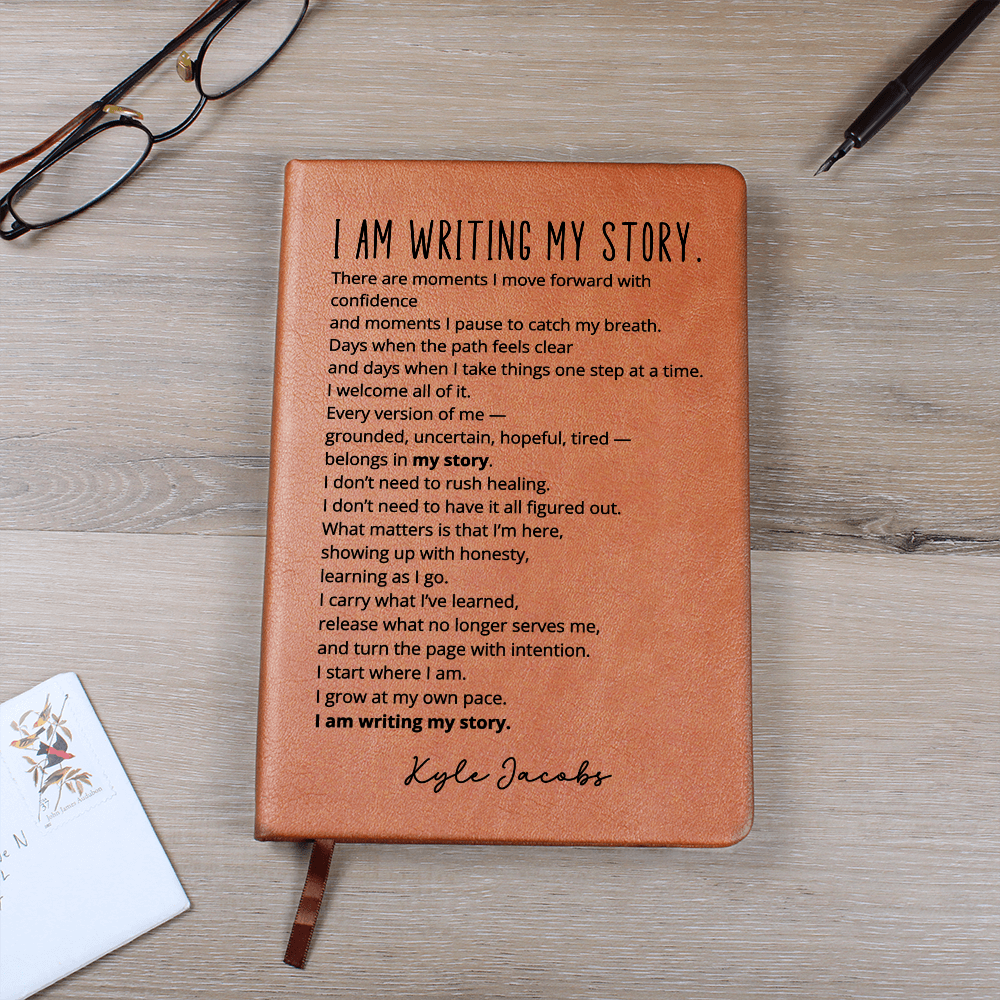 I AM WRITING MY STORY.
There are moments I move forward with
confidence
and moments I pause to catch my breath.
Days when the path feels clear
and days when I take things one step at a time.
I welcome all of it.
Every version of me —
grounded, uncertain, hopeful, tired —
belongs in my story.
I don’t need to rush healing.
I don’t need to have it all figured out.
What matters is that I’m here,
showing up with honesty,
learning as I go.
I carry what I’ve learned,
release what no longer serves me,
and turn the page with intention.
I start where I am.
I grow at my own pace.
I am writing my story.
Kyle Jacobs
37
John James Audubon
N